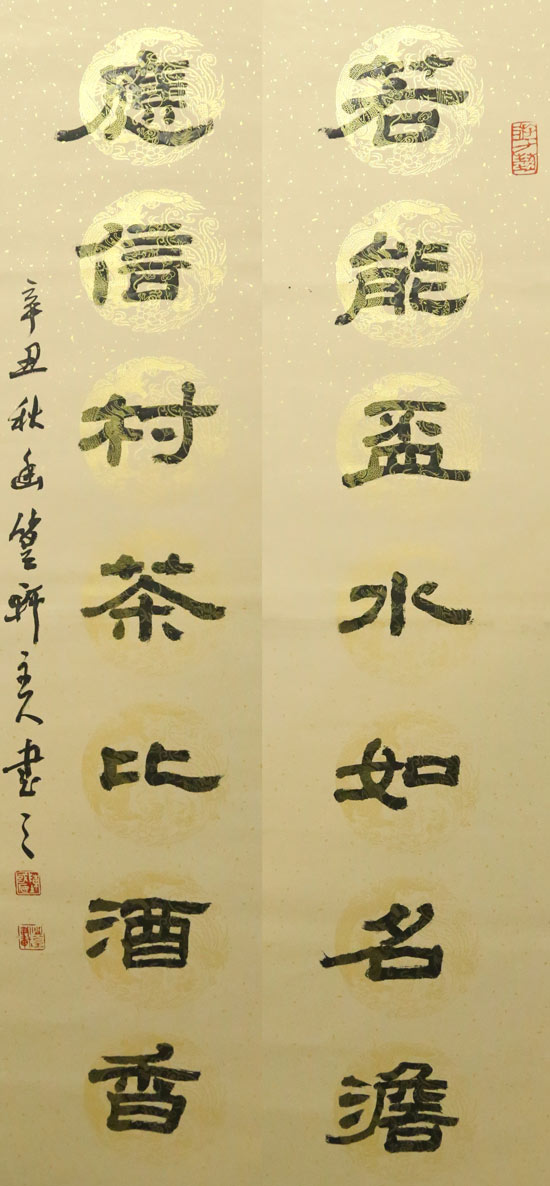 若能盃水如名澹
應信村茶比酒香
辛丑秋幽篁軒主人書之